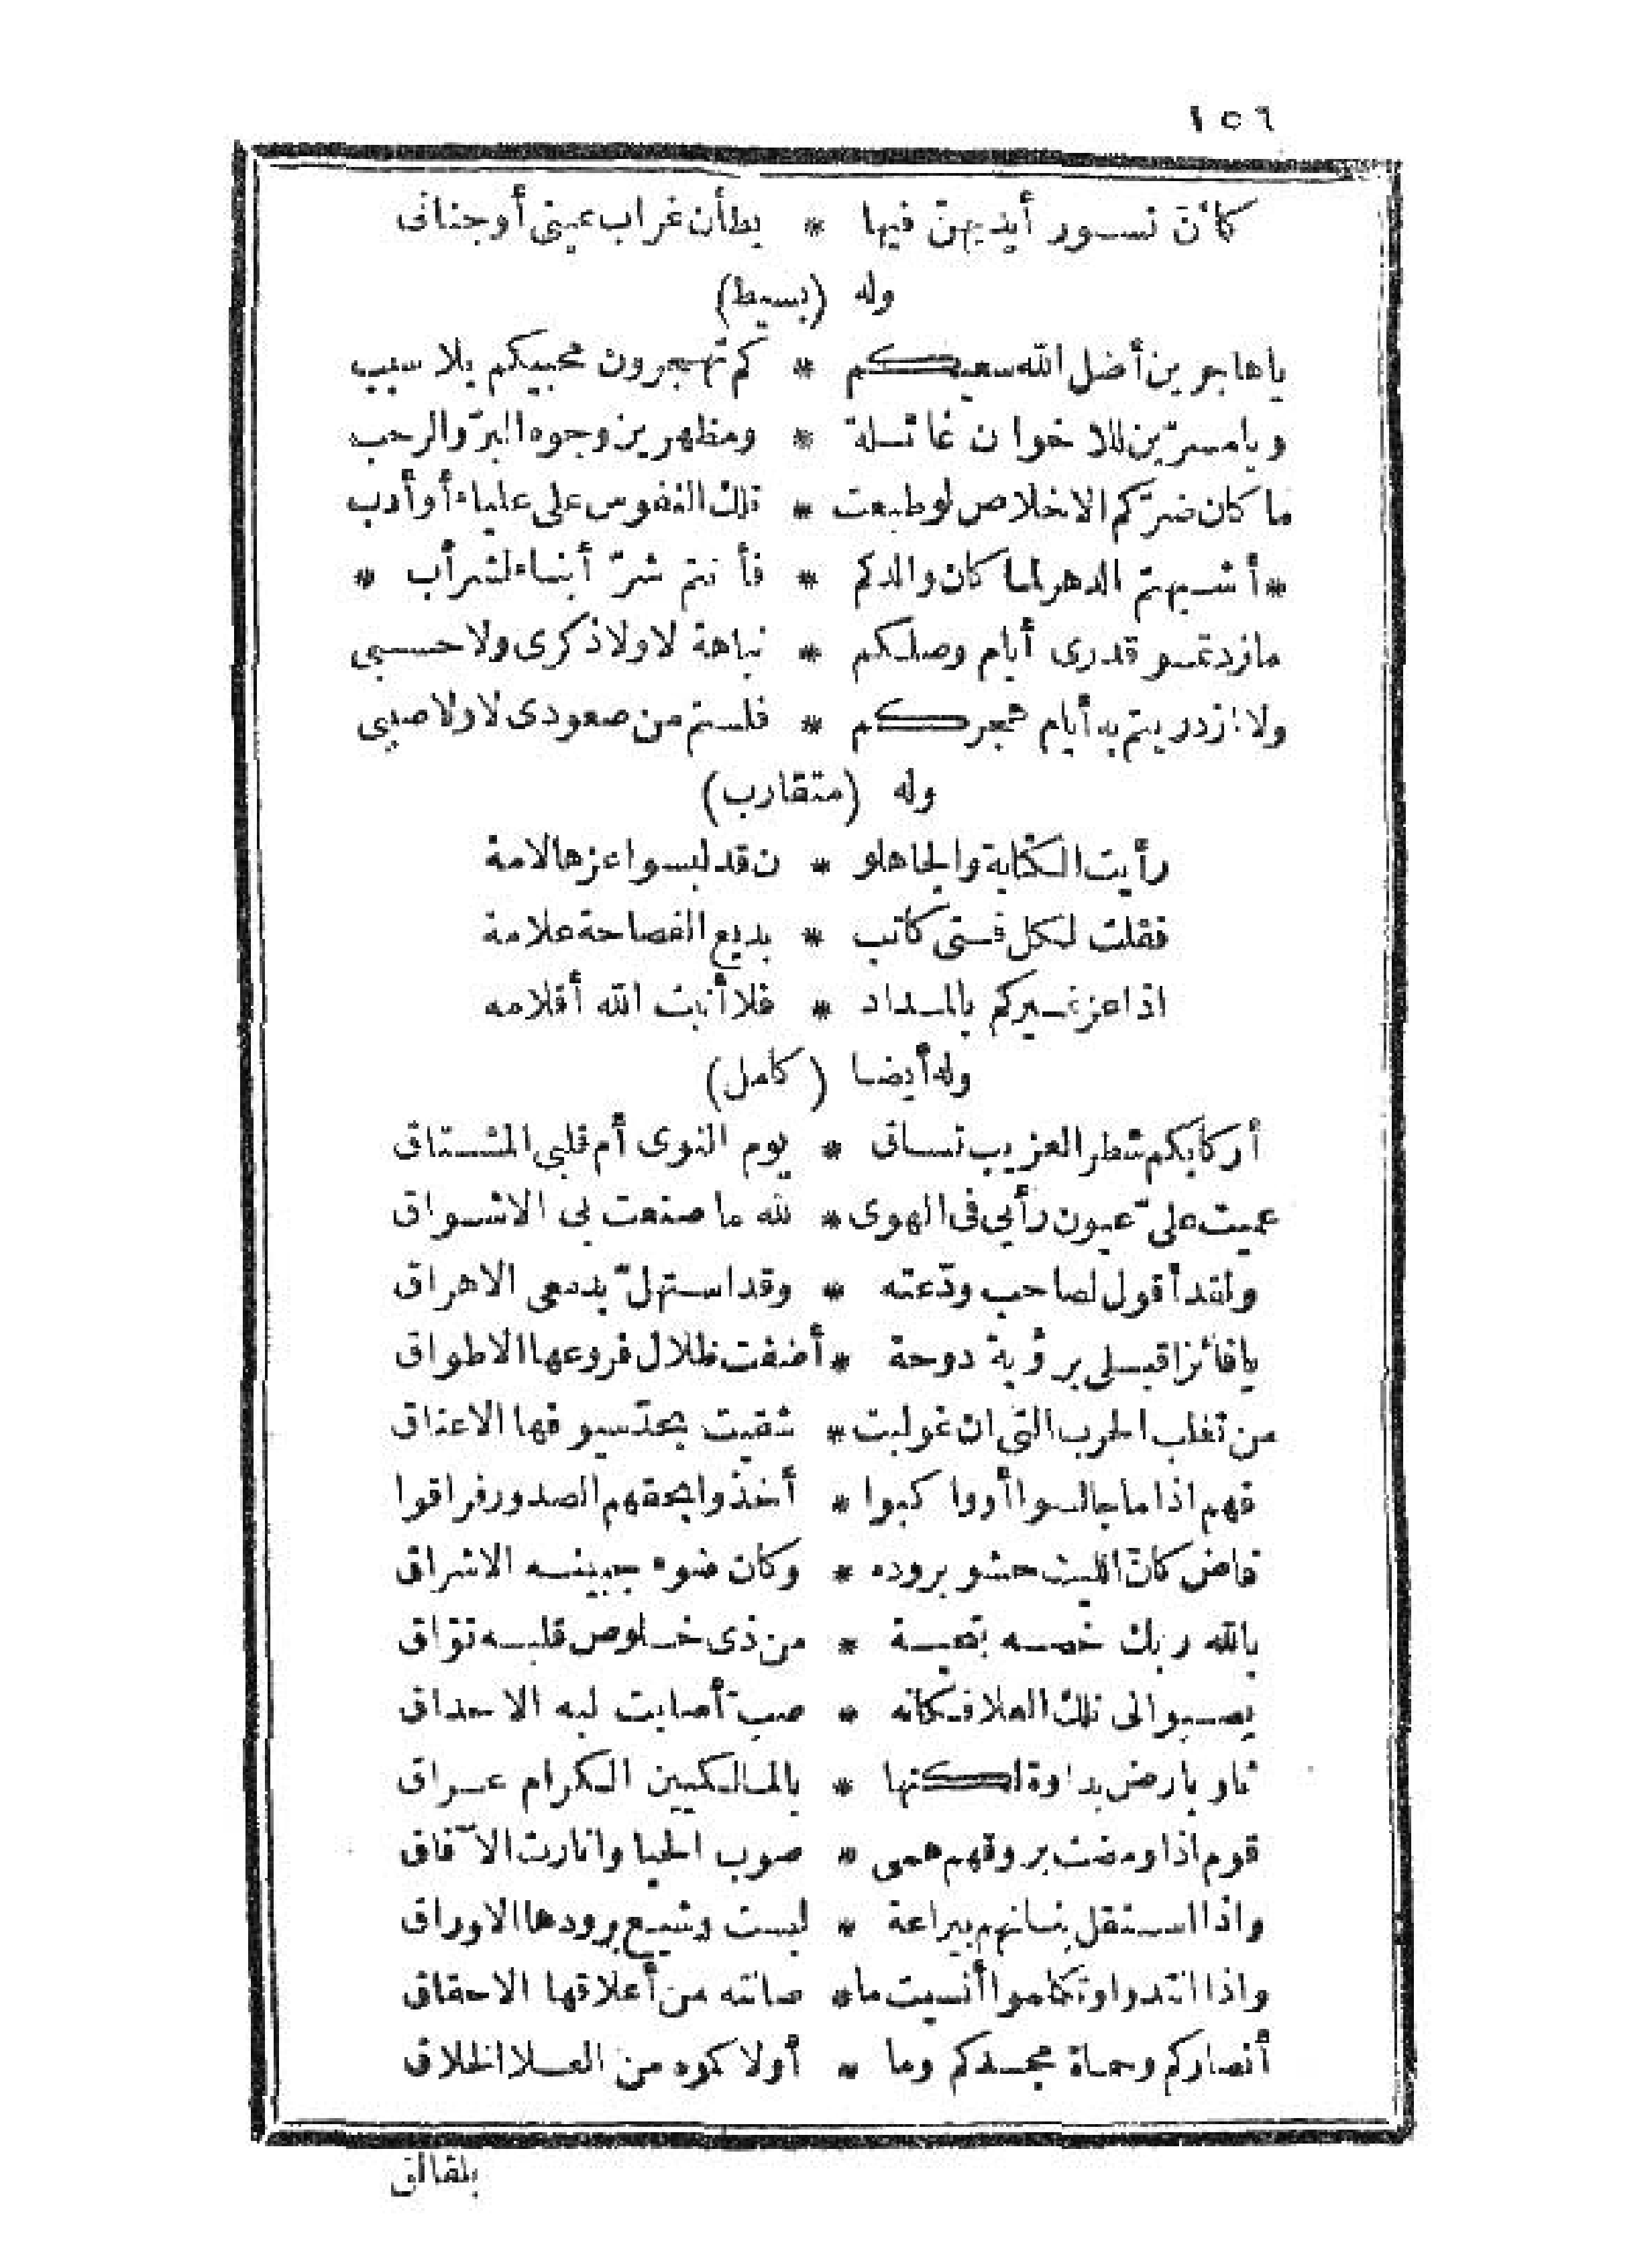 ١٥٦
كانّ نسور أيديهنّ فيها * يطأن غراب عيني أو جناني
وله (بسيط)
ياهاجرين أضل الله سعيكم * كم تهجرون محبيكم بلا سبب
ويا مسرّين للاخوان غائلة * ومظهرين وجوه البرّ والرحب
ما كان ضرّكم الاخلاص لو طبعت * تلك النفوس على علياء أو أدب
* أشبهتم الدهر لما كان والدكم * فأنتم شرّ أبناء لشرّ أب *
مازدتمو قدرى أيام وصلكم * نباهة لا ولا ذكرى ولا حسبى
ولا ازدريتم به أيام هجركم * فلستم من صعودى لا ولا صببى
وله (متقارب)
رأيت الكتابة والجاهلو * ن قد لبسوا عزها لامة
فقلت لكل فتى كاتب * بديع الفصاحة علامة
اذا عز غيركم بالمداد * فلا أنبت الله أقلامه
وله أيضا (كامل)
أركابكم شطر العزيب تساق * يوم النوى أم قلبى المشتاق
عميت علىّ عيون رأيى فى الهوى * لله ما صنعت بى الاشواق
ولقد أقول لصاحب ودّعته * وقد استهلّ بدمعى الاهراق
يا فائزا قبلى برؤية دوحة * أضفت ظلال فروعها الاطواق
من تغلب الحرب التى ان غولبت * شقيت بحدّ سيوفها الاعناق
فهم اذا ما جالسوا أو واكبوا * أخذوا بحقهم الصدور فراقوا
قاض كانّ الليث حشو بروده * وكان ضوء جبينه الاشراق
بالله ربك خصه بتحية * من ذى خلوص قلبه تواق
يصبو الى تلك العلا فكانه * صب أصابت لبه الاحداق
ثاو بارض بداوة لكنها * بالمالكيين الكرام عراق
قوم اذا ومضت بروقهم همى * صوب الحيا وانارت الآفاق
واذا استقل بنانهم بيراعة * لبست وشيع برودها الاوراق
واذا انتدوا وتكلموا أنسيت ما * صانته من أعلاقها الاحقاق
أنصاركم وحماة مجدكم وما * أولاكموه من العلا الخلاق